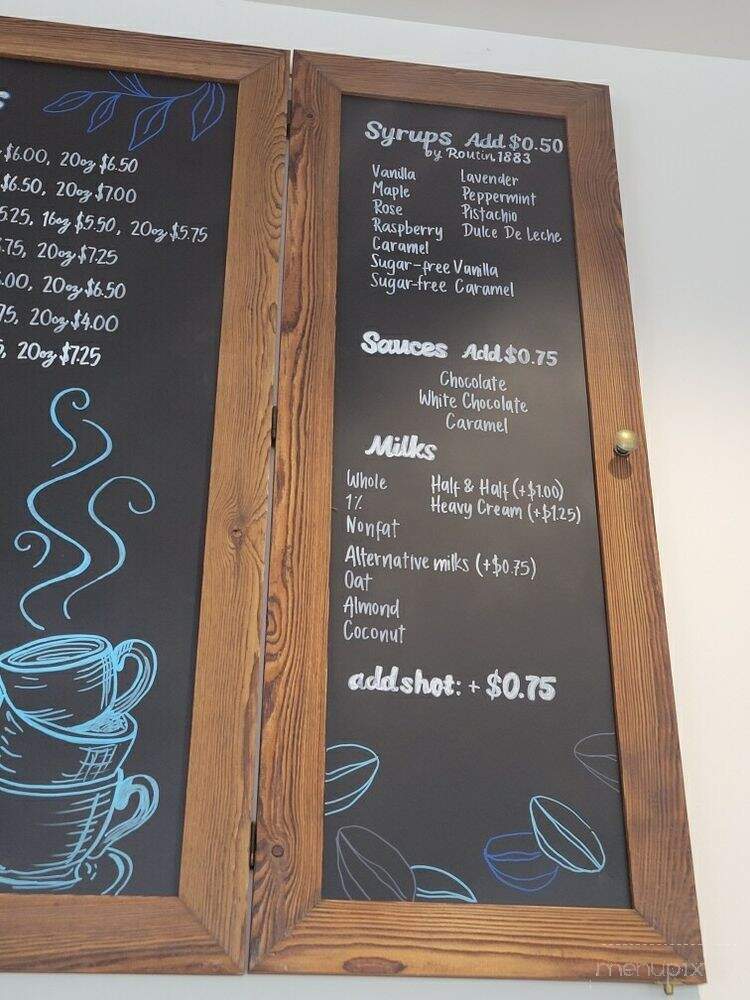 $6.00, 20oz $6.50
$6.50, 20oz $7.00
5.25, 16oz $5.50, 20oz $5.75
.75, 20oz $7.25
.00, 20oz $6.50
75, 20oz $4.00
, 20oz $7.25
Syrups Add $0.50
by Routin 1883
Vanilla Lavender
Maple Peppermint
Rose Pistachio
Raspberry Dulce De Leche
Caramel
Sugar-free Vanilla
Sugar-free Caramel
Sauces Add $0.75
Chocolate
White Chocolate
Caramel
Milks
Whole Half & Half (+$1.00)
1% Heavy Cream (+$1.25)
Nonfat
Alternative milks (+$0.75)
Oat
Almond
Coconut
add shot: + $0.75
menupix